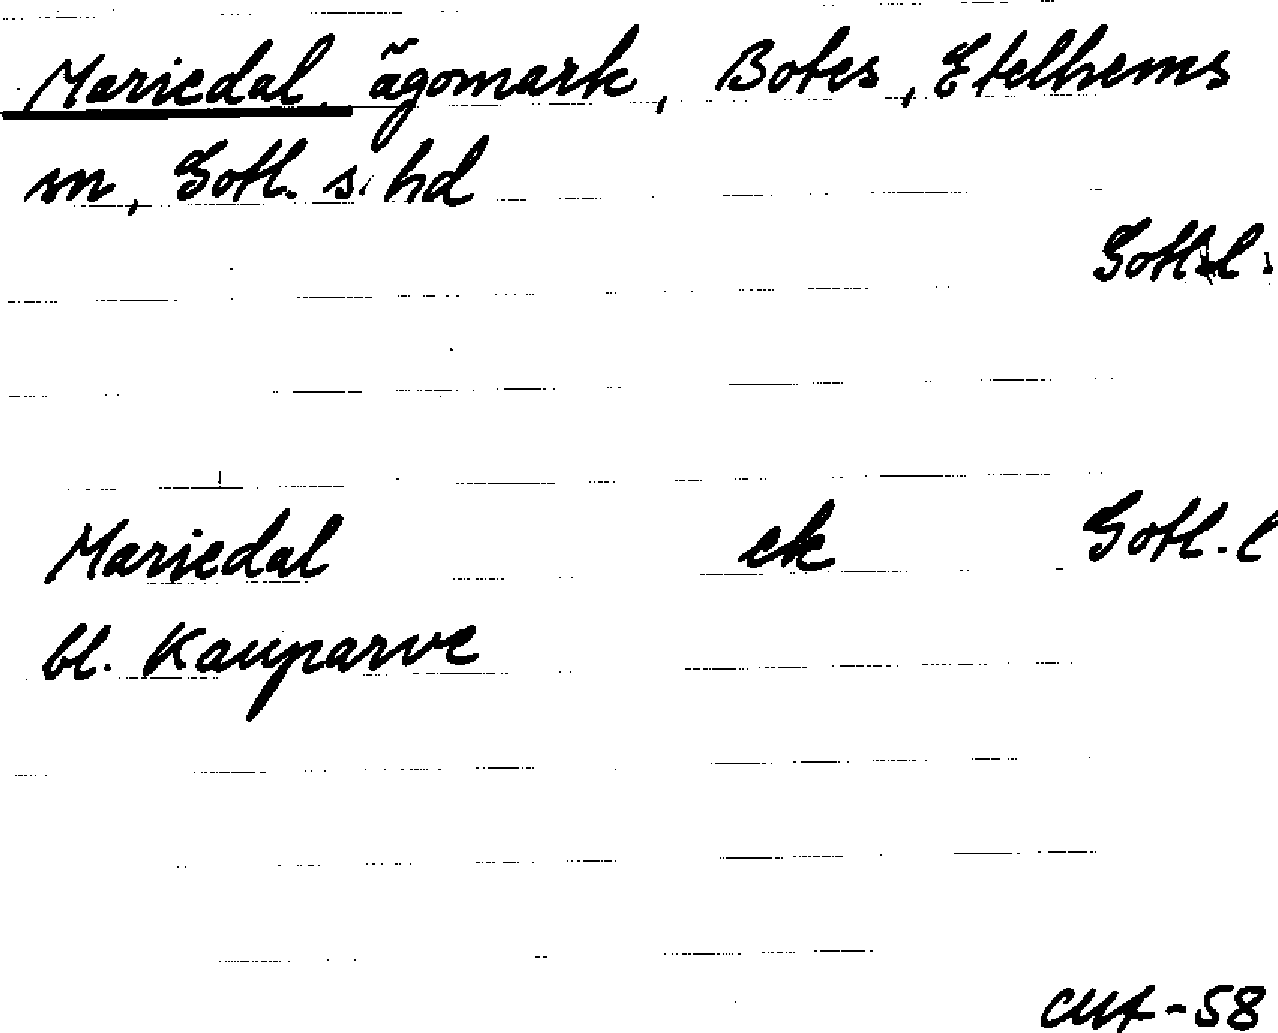 Mariedal, ägomark, Botes, Etelhems
sn, Gotl. s. hd
Gotl. l.
Mariedal ek Gotl. l
bl. Kauparve
CMf-58